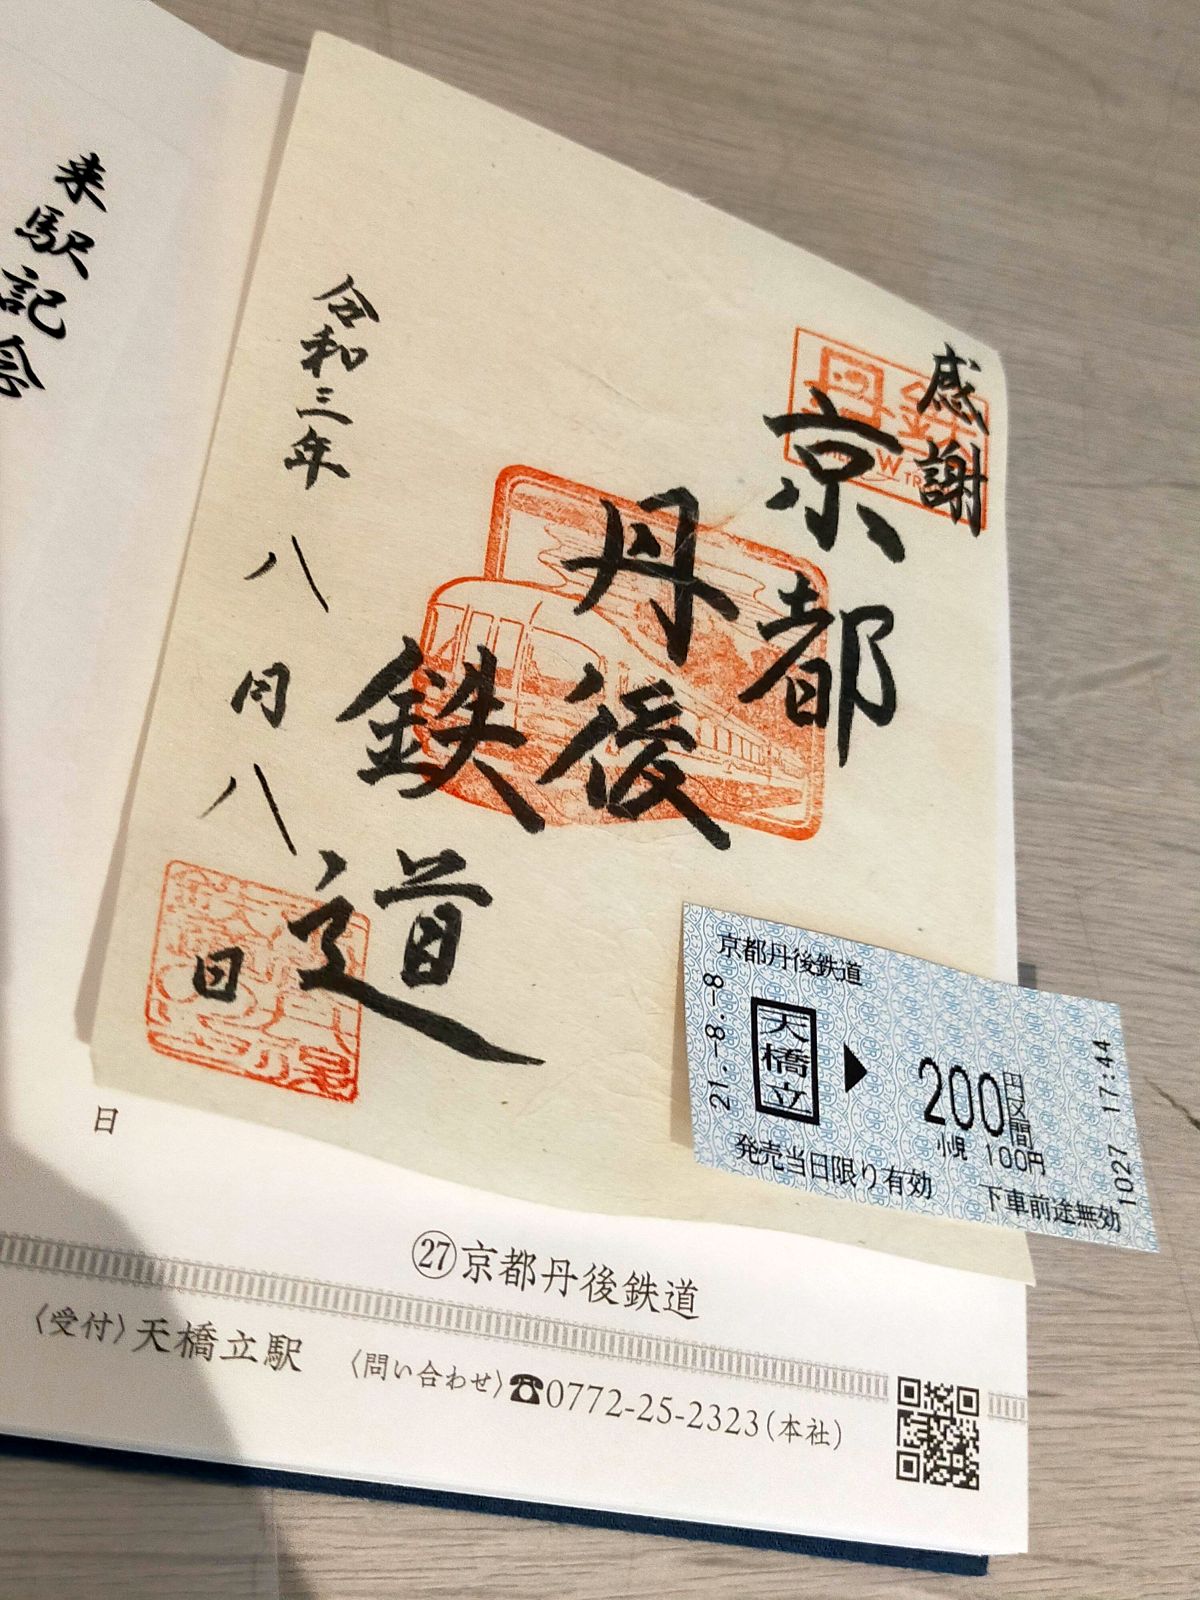 感謝
京都
丹後
鉄道
令和三年八月八日
丹鉄
来駅記念
京都丹後鉄道
21.-8.-8
天橋立
▶
200円区間
小児 100円
発売当日限り有効
下車前途無効
1027 17:44
日
㉗京都丹後鉄道
〈受付〉天橋立駅
〈問い合わせ〉☎0772-25-2323(本社)